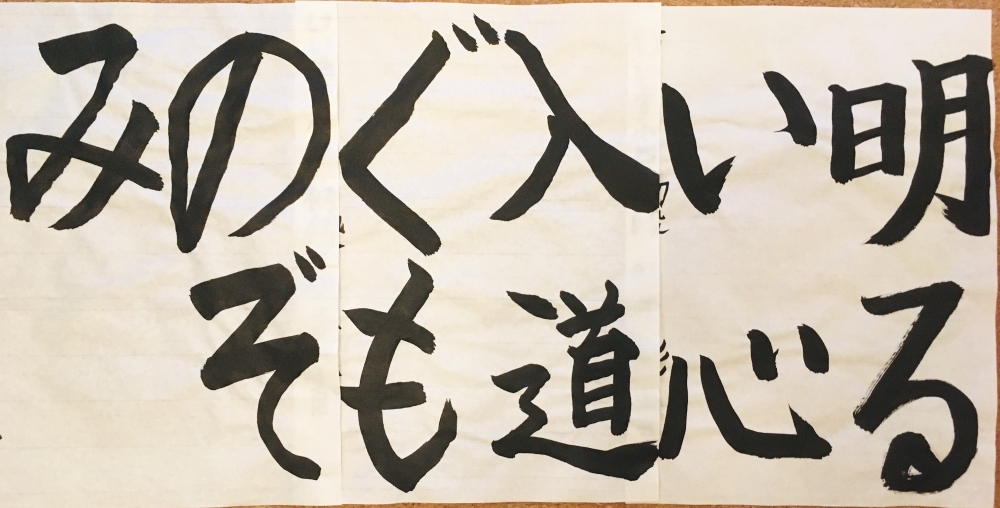 明る
い心
入道
ぐも
のぞ
み